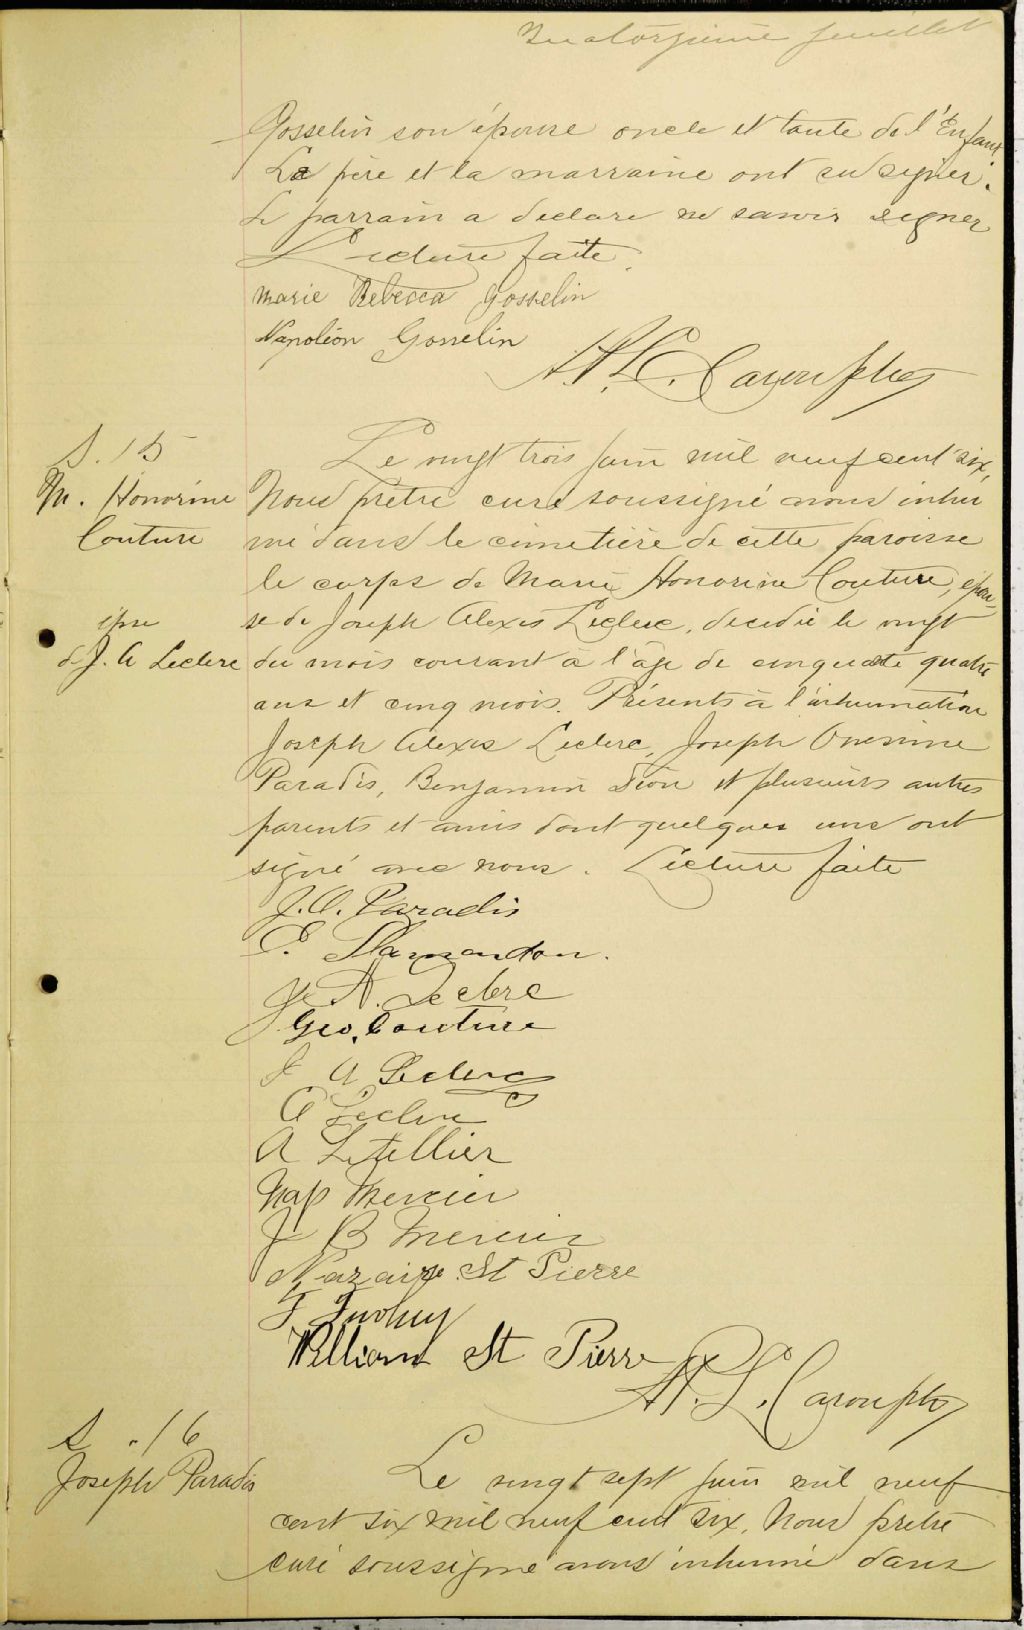 Quatorzième feuillet
Gosselin son épouse oncle et tante de l'Enfant
Le père et la marraine ont su signer.
Le parrain a déclaré ne savoir signer
Lecture faite.
Marie Rebecca Gosselin
Napoléon Gosselin
S. 15
M. Honorine
Couture
épse
de J. A Leclerc
Le vingt trois Juin mil neuf cent six,
Nous prêtre curé soussigné avons inhu
mé dans le cimetière de cette paroisse
le corps de Marie Honorine Couture, épou-
se de Joseph Alexis Leclerc, décédée le vingt
du mois courant à l'âge de cinquate quatre
ans et cinq mois. Présents à l'inhumation
Joseph Alexis Leclerc, Joseph Onesime
Paradis, Benjamin Dion et plusieurs autres
parents et amis dont quelques uns ont
signé avec nous. Lecture faite
J. O. Paradis
E. Plamondon.
A. Leclerc
Geo. Couture
J A Leclerc
A Leclerc
A Letellier
Nap Mercier
J B Mercier
Nazaire St Pierre
William St Pierre
S. 16
Joseph Paradis
Le vingt sept Juin mil neuf
cent six mil neuf cent six, Nous prêtre
curé soussigné avons inhumé dans